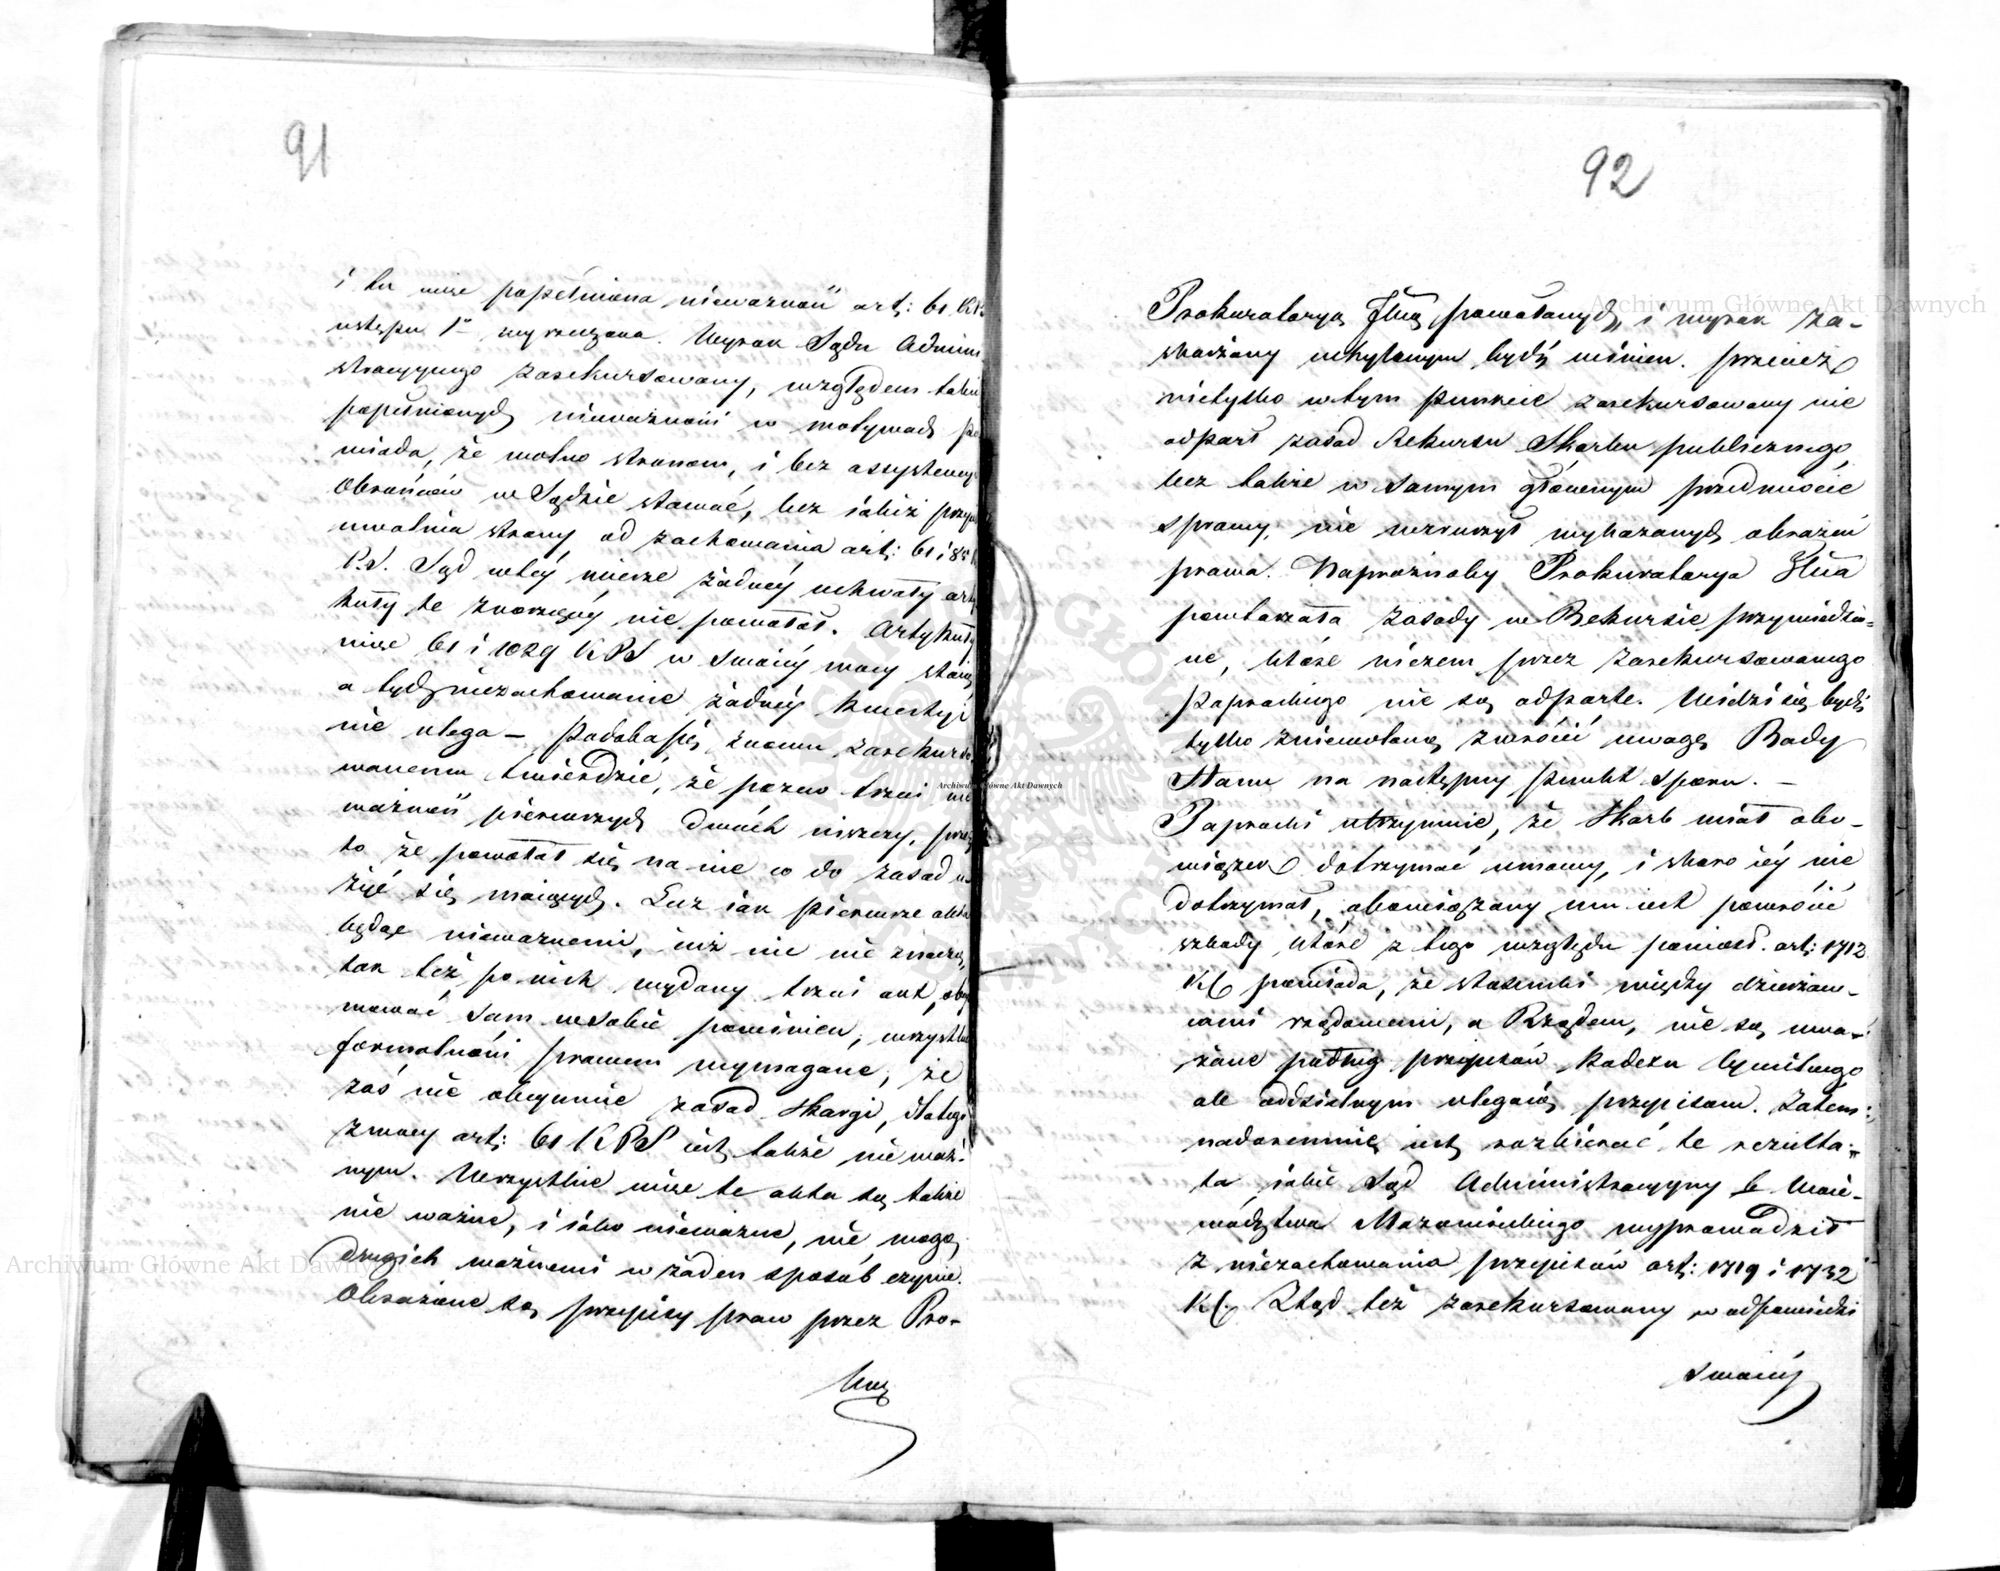 91
i tu więc popełniona nieważność art: 61 KPS
ustępu 1° wyrzeczona. Wyrok Sądu Admini
stracyynego zarekursowany, względem takich
popełnionych nieważności w motywach po
wiada, że wolno stronom, i bez assystencyi
Obrońców w Sądzie stawać, lecz iakiż przepis
uwalnia strony od zachowania art: 61 i
P.S. Sąd w tej mierze żadney uchwały arty
kuły te znoszącey nie powołał. Artykuły
więc 61 i 1029 KPS w swoiey mocy stoią
a tych niezachowanie żadney kwestyi
nie ulega — Podoba się znowu zarekurso
wanemu twierdzić, że pozew trzeci
ważność pierwszych dwóch niszczy, przez
to że powołał się na nie co do zasad
żyć się maiących. Lecz iak pierwsze akta
będąc nieważnemi, iuż nic nie znaczą,
tak też po nich wydany trzeci akt, obey
mować sam w sobie powinien, wszystkie
formalności prawem wymagane, że
zaś nie obeymuie zasad skargi, dlatego
z mocy art: 61 KPS iest także nieważ-
nym. Wszystkie więc te akta są także
nie ważne, i iako nieważne, nie mogą
drugich ważnemi w żaden sposób czynić.
Obrażone są przepisy praw przez Pro-
kura
92
Prokuratoryą Jlną powołanych, i wyrok za-
skarżony uchylonym bydź winien. Przeciez
nietylko w tym punkcie zarekursowany nie
odparł zasad Rekursu Skarbu publicznego,
lecz także w samym głównym przedmiocie
sprawy, nie wzruszył wykazanych obrażeń
prawa. Napróżnoby Prokuratorya Jlna
powtarzała zasady w Rekursie przywiedzio-
ne, które niczem przez zarekursowanego
Paprockiego nie są odparte. Widzi się bydź
tylko zniewoloną zwrócić uwagę Rady
Stanu na następny punkt sporu. —
Paprocki utrzymuie, że Skarb miał obo-
wiązek dotrzymać umowy, i skoro iey nie
dotrzymał, obowiązany mu iest powrócić
szkody które z tego względu poniósł. art: 1712
KC powiada, że stosunki między dzierżaw-
cami rządowemi, a Rządem, nie są uwa-
żane podług przepisów Kodexu Cywilnego
ale oddzielnym ulegaią przepisom. Zatem
nadaremnie iest rozbierać te rezulta-
ta iakie Sąd Administracyyny b Woie-
wództwa Mazowieckiego wyprowadził
z niezachowania przepisów art: 1719 i 1732
KC. Ztąd też zarekursowany w odpowiedzi
swoiey
Archiwum Główne Akt Dawnych
Archiwum Główne Akt Dawnych
Archiwum Główne Akt Dawnych